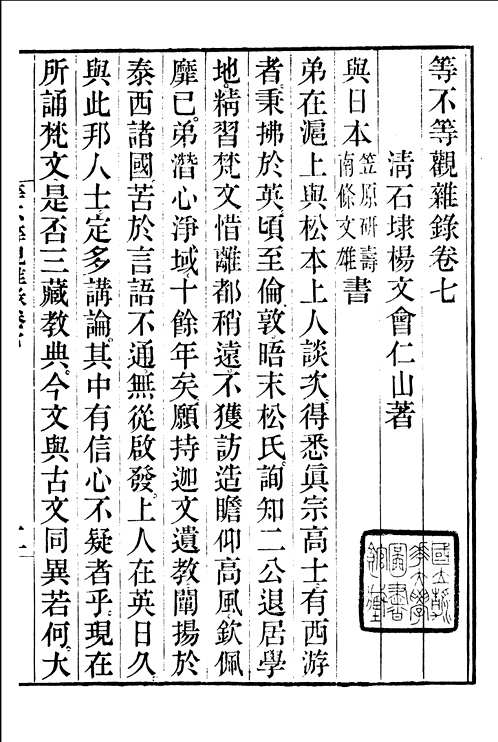 等不等觀雜錄卷七
清石埭楊文會仁山著
與日本笠原研壽南條文雄書
弟在滬上與松本上人談次。得悉眞宗高士有西游
者。秉拂於英。頃至倫敦晤末松氏。詢知二公退居學
地。精習梵文。惜離都稍遠。不獲訪造瞻仰高風。欽佩
靡已。弟潛心淨域。十餘年矣。願持迦文遺教闡揚於
泰西諸國。苦於言語不通。無從啟發。上人在英日久
與此邦人士定多講論。其中有信心不疑者乎。現在
所誦梵文是否三藏教典。今文與古文同異若何。大